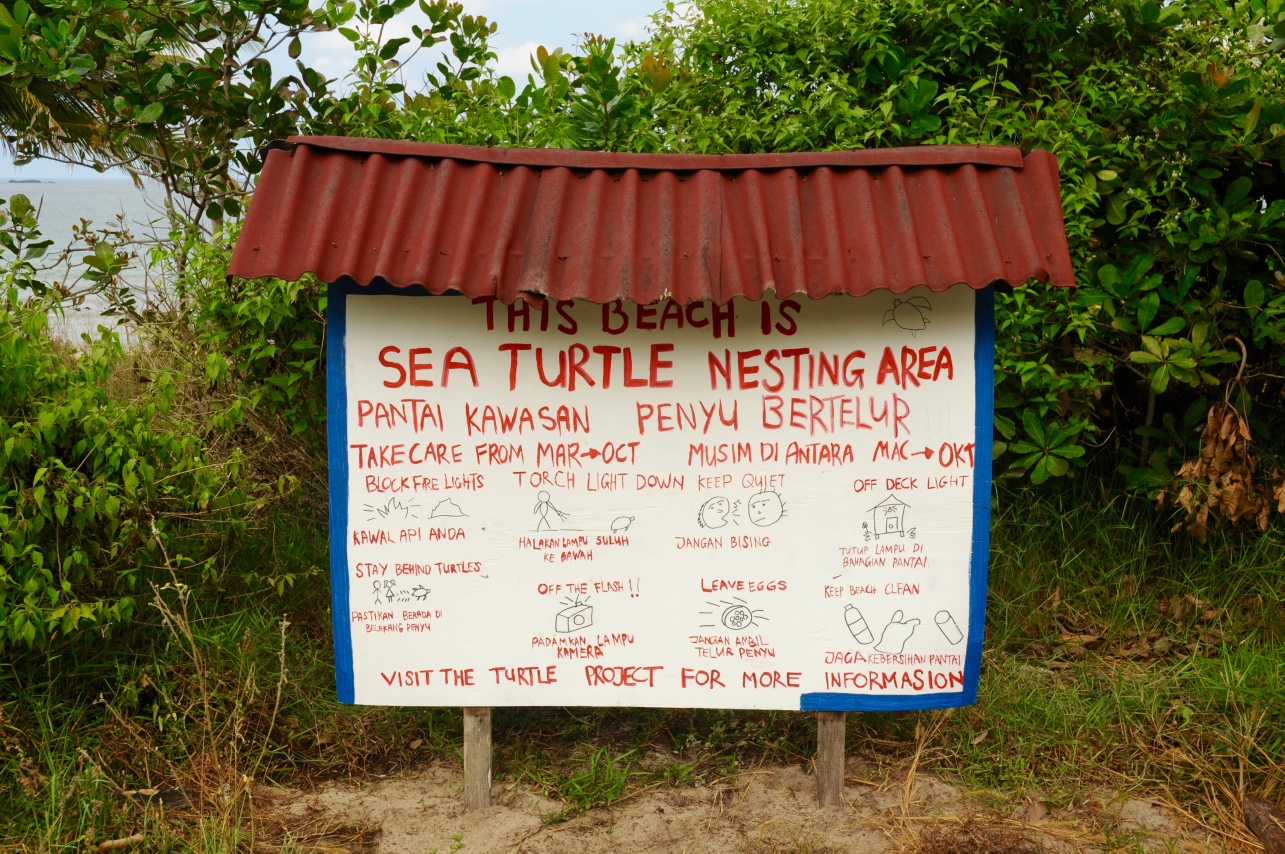 THIS BEACH IS
SEA TURTLE NESTING AREA
PANTAI KAWASAN PENYU BERTELUR
TAKE CARE FROM MAR→OCT MUSIM DI ANTARA MAC→OKT
BLOCK FIRE LIGHTS TORCH LIGHT DOWN KEEP QUIET OFF DECK LIGHT
KAWAL API ANDA
HALAKAN LAMPU SULUH
KE BAWAH
JANGAN BISING
TUTUP LAMPU DI
BAHAGIAN PANTAI
STAY BEHIND TURTLES OFF THE FLASH !! LEAVE EGGS KEEP BEACH CLEAN
PASTIKAN BERADA DI
BELAKANG PENYU
PADAMKAN LAMPU
KAMERA
JANGAN AMBIL
TELUR PENYU
JAGA KEBERSIHAN PANTAI
VISIT THE TURTLE PROJECT FOR MORE INFORMASION